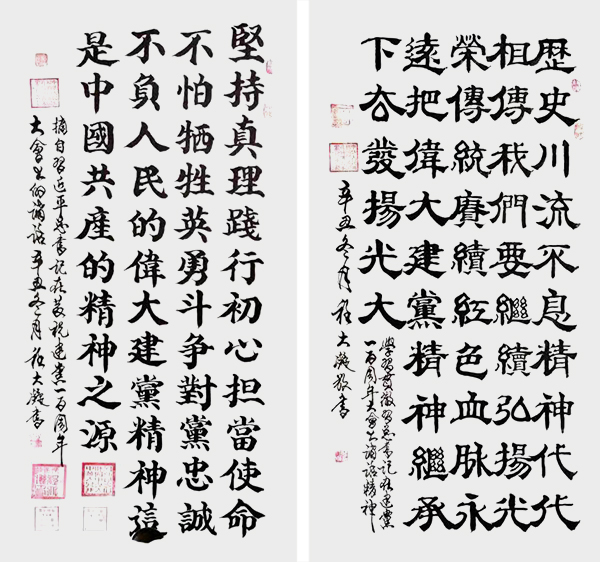 堅持真理踐行初心担當使命
不怕牺牲英勇斗争對黨忠誠
不負人民的偉大建黨精神這
是中國共產的精神之源
摘自習近平总書記在慶祝建黨一百周年
大會上的講話 辛丑冬月 程大凝書
歷史川流不息精神代代
相傳我們要繼續弘揚光
榮傳統賡續紅色血脉永
遠把偉大建黨精神繼承
下去發揚光大
學習 習总書記在建黨
一百周年大會上講話精神
辛丑冬月 程大凝敬書